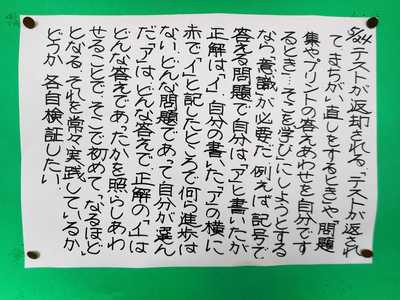 5/24 テストが返却される。「テストが返され
て、まちがい直しをするとき」や、「問題
集やプリントの答えあわせを自分です
るとき」…そこを「学び」にしようとする
なら、意識が必要だ。例えば、記号で
答える問題で自分は、「ア」と書いたが
正解は、「イ」。自分の書いた、「ア」の横に
赤で「イ」と記したところで何ら進歩は
ない。どんな問題であって、自分が選ん
だ「ア」は、どんな答えで、正解の「イ」は
どんな答えであったかを照らしあわ
せることで、そこで初めて、「なるほど」
となる。それを常々実践しているか、
どうか、各自検証したい。